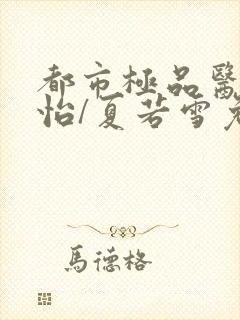 都市極品醫
怡/夏若雪
馬德格